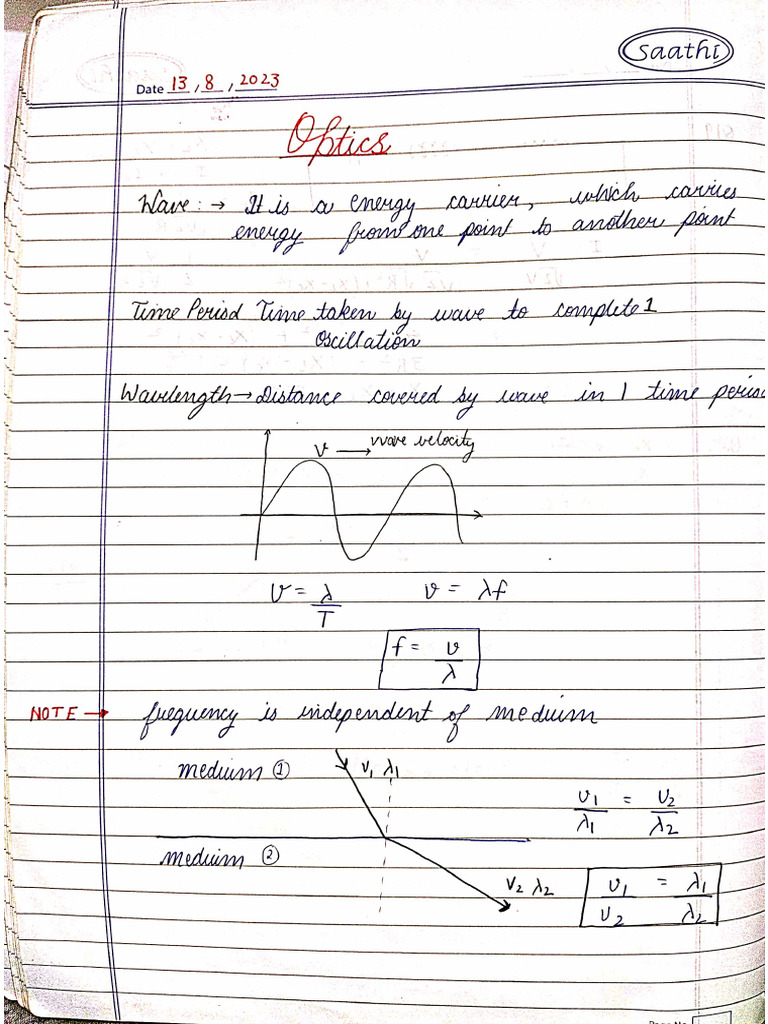 Saathi
Date 13, 8, 2023
Optics
Wave: → It is a energy carrier, which carries
energy from one point to another point
Time Period Time taken by wave to complete 1
Oscillation
Wavelength → Distance covered by wave in 1 time period
v → Wave velocity
v = λ/T v = λf
f = v/λ
NOTE → frequency is independent of medium
medium ① v₁ λ₁
v₁/λ₁ = v₂/λ₂
medium ②
v₂ λ₂ v₁/v₂ = λ₁/λ₂